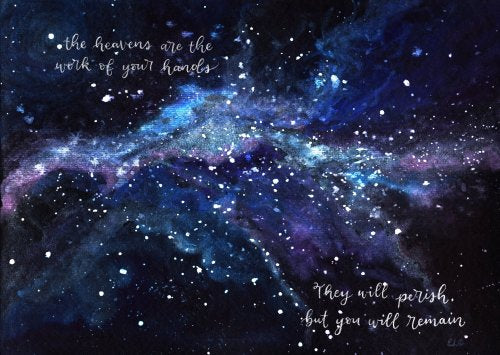 the heavens are the
work of your hands
They will perish,
but you will remain